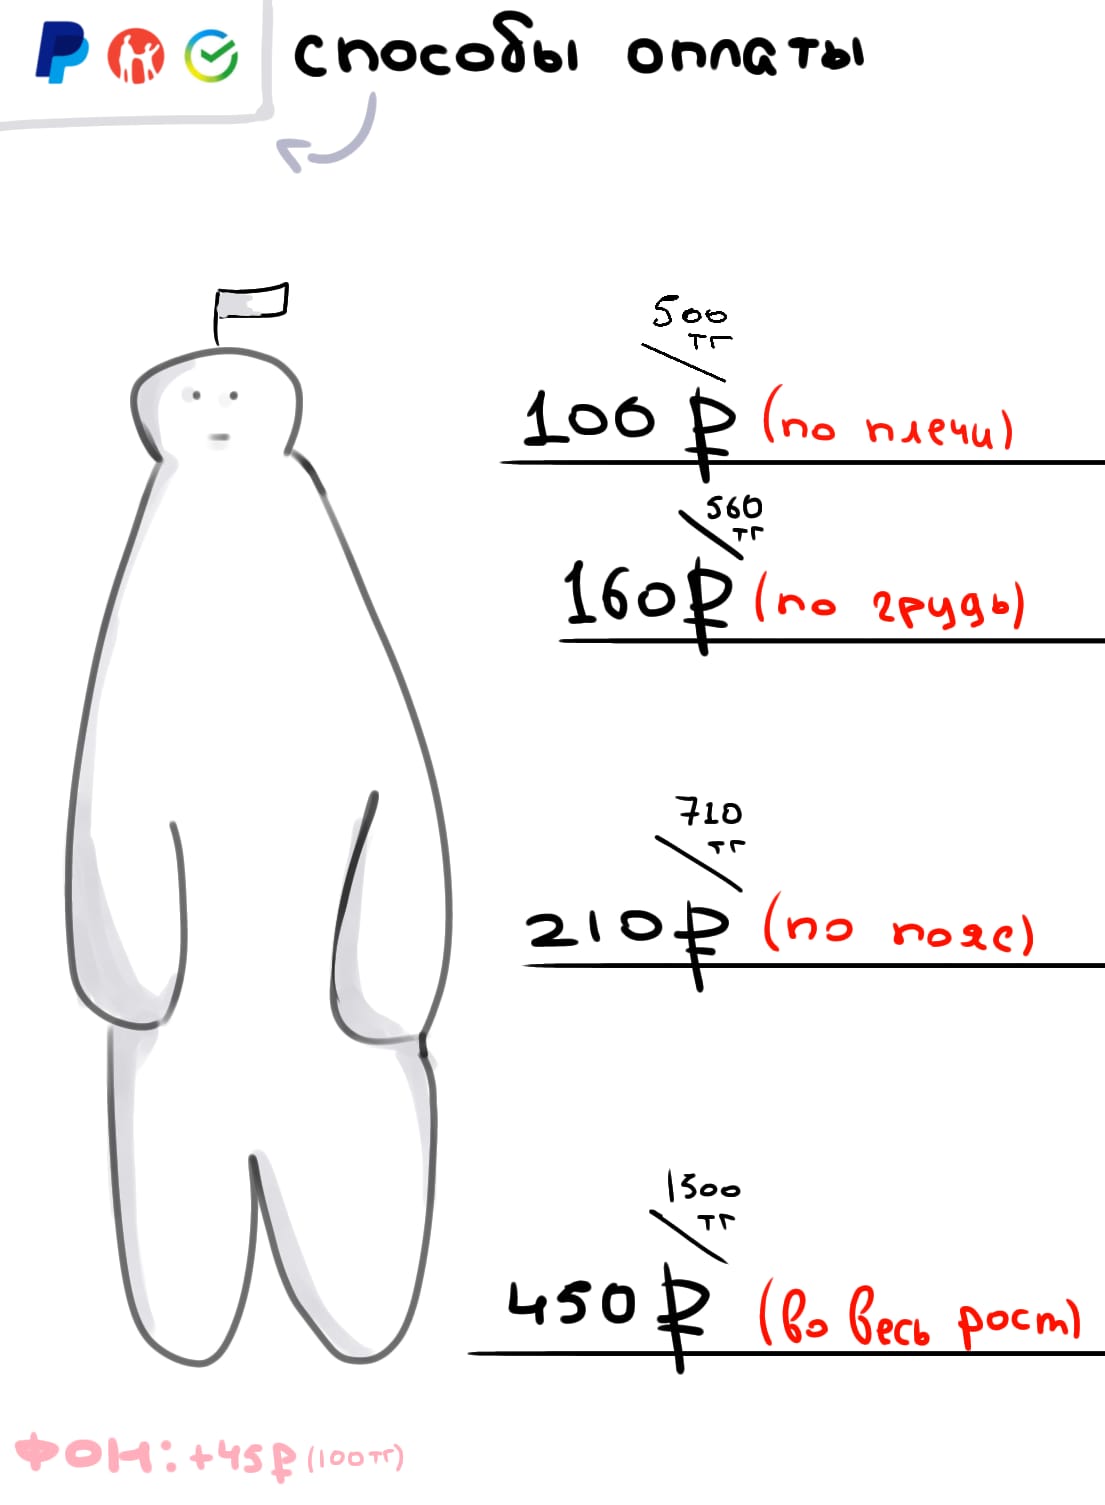 способы оплаты
500
тг
100 ₽ (по плечи)
560
тг
160₽ (по грудь)
710
тг
210₽ (по пояс)
1500
тг
450₽ (во весь рост)
ФОН: +45₽ (100тг)